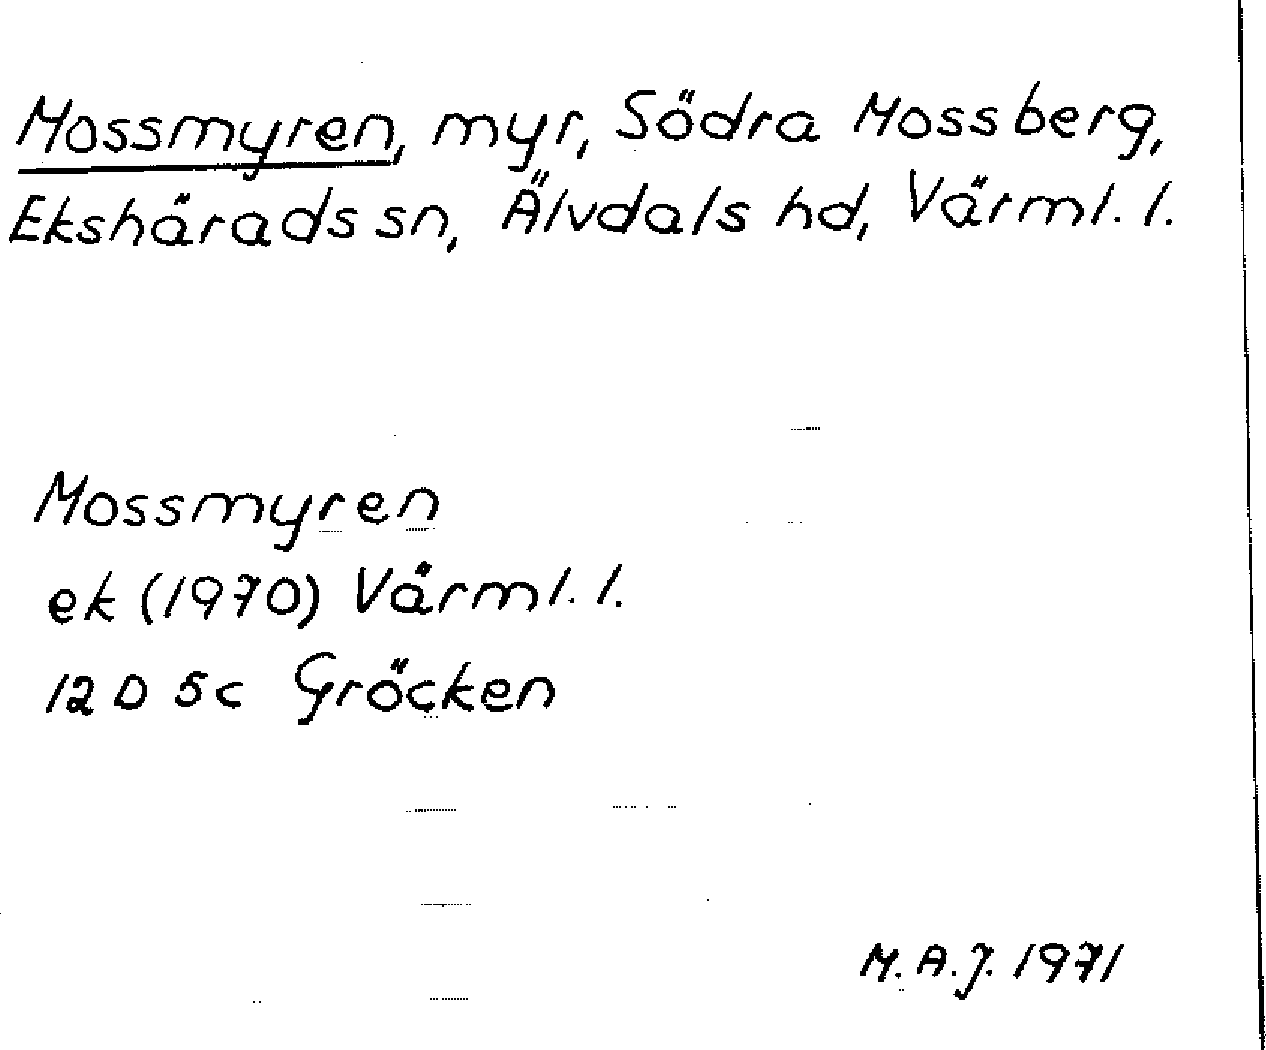 Mossmyren, myr, Södra Mossberg,
Ekshärads sn, Älvdals hd, Värml. l.
Mossmyren
ek (1970) Värml. l.
12 D 5c Gröcken
M. A. J. 1971